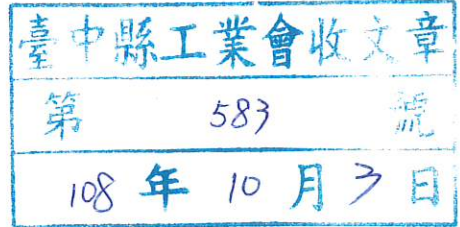 臺中縣工業會收文章
第 583 號
108 年 10 月 3 日